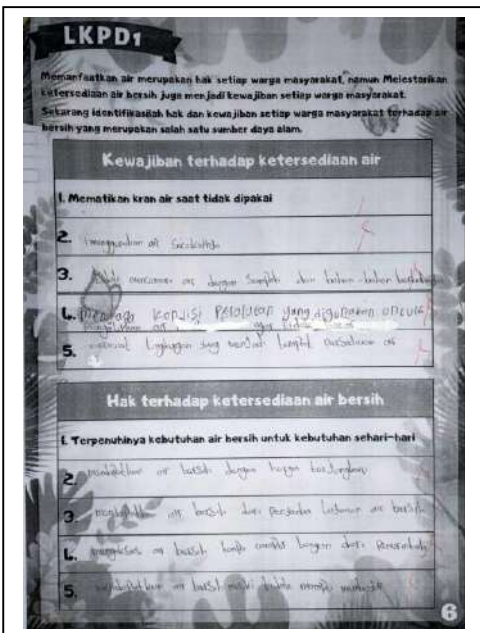 LKPD1
Memanfaatkan air merupakan hak setiap warga masyarakat, namun Melestarikan
ketersediaan air bersih juga menjadi kewajiban setiap warga masyarakat.
Sekarang identifikasilah hak dan kewajiban setiap warga masyarakat terhadap air
bersih yang merupakan salah satu sumber daya alam.
Kewajiban terhadap ketersediaan air
1. Mematikan kran air saat tidak dipakai
2. menggunakan air secukupnya
3. mencemari air dengan sampah dan bahan-bahan
4. Menjaga kondisi peralatan yang digunakan untuk
air agar tidak
5. merawat lingkungan yang menjadi tempat air
Hak terhadap ketersediaan air bersih
1. Terpenuhinya kebutuhan air bersih untuk kebutuhan sehari-hari
2. mendapatkan air bersih dengan harga terjangkau
3. mendapatkan air bersih dari penyedia layanan air bersih
4. air bersih tanpa dari pemerintah
5. mendapatkan air bersih meski tidak mampu
6